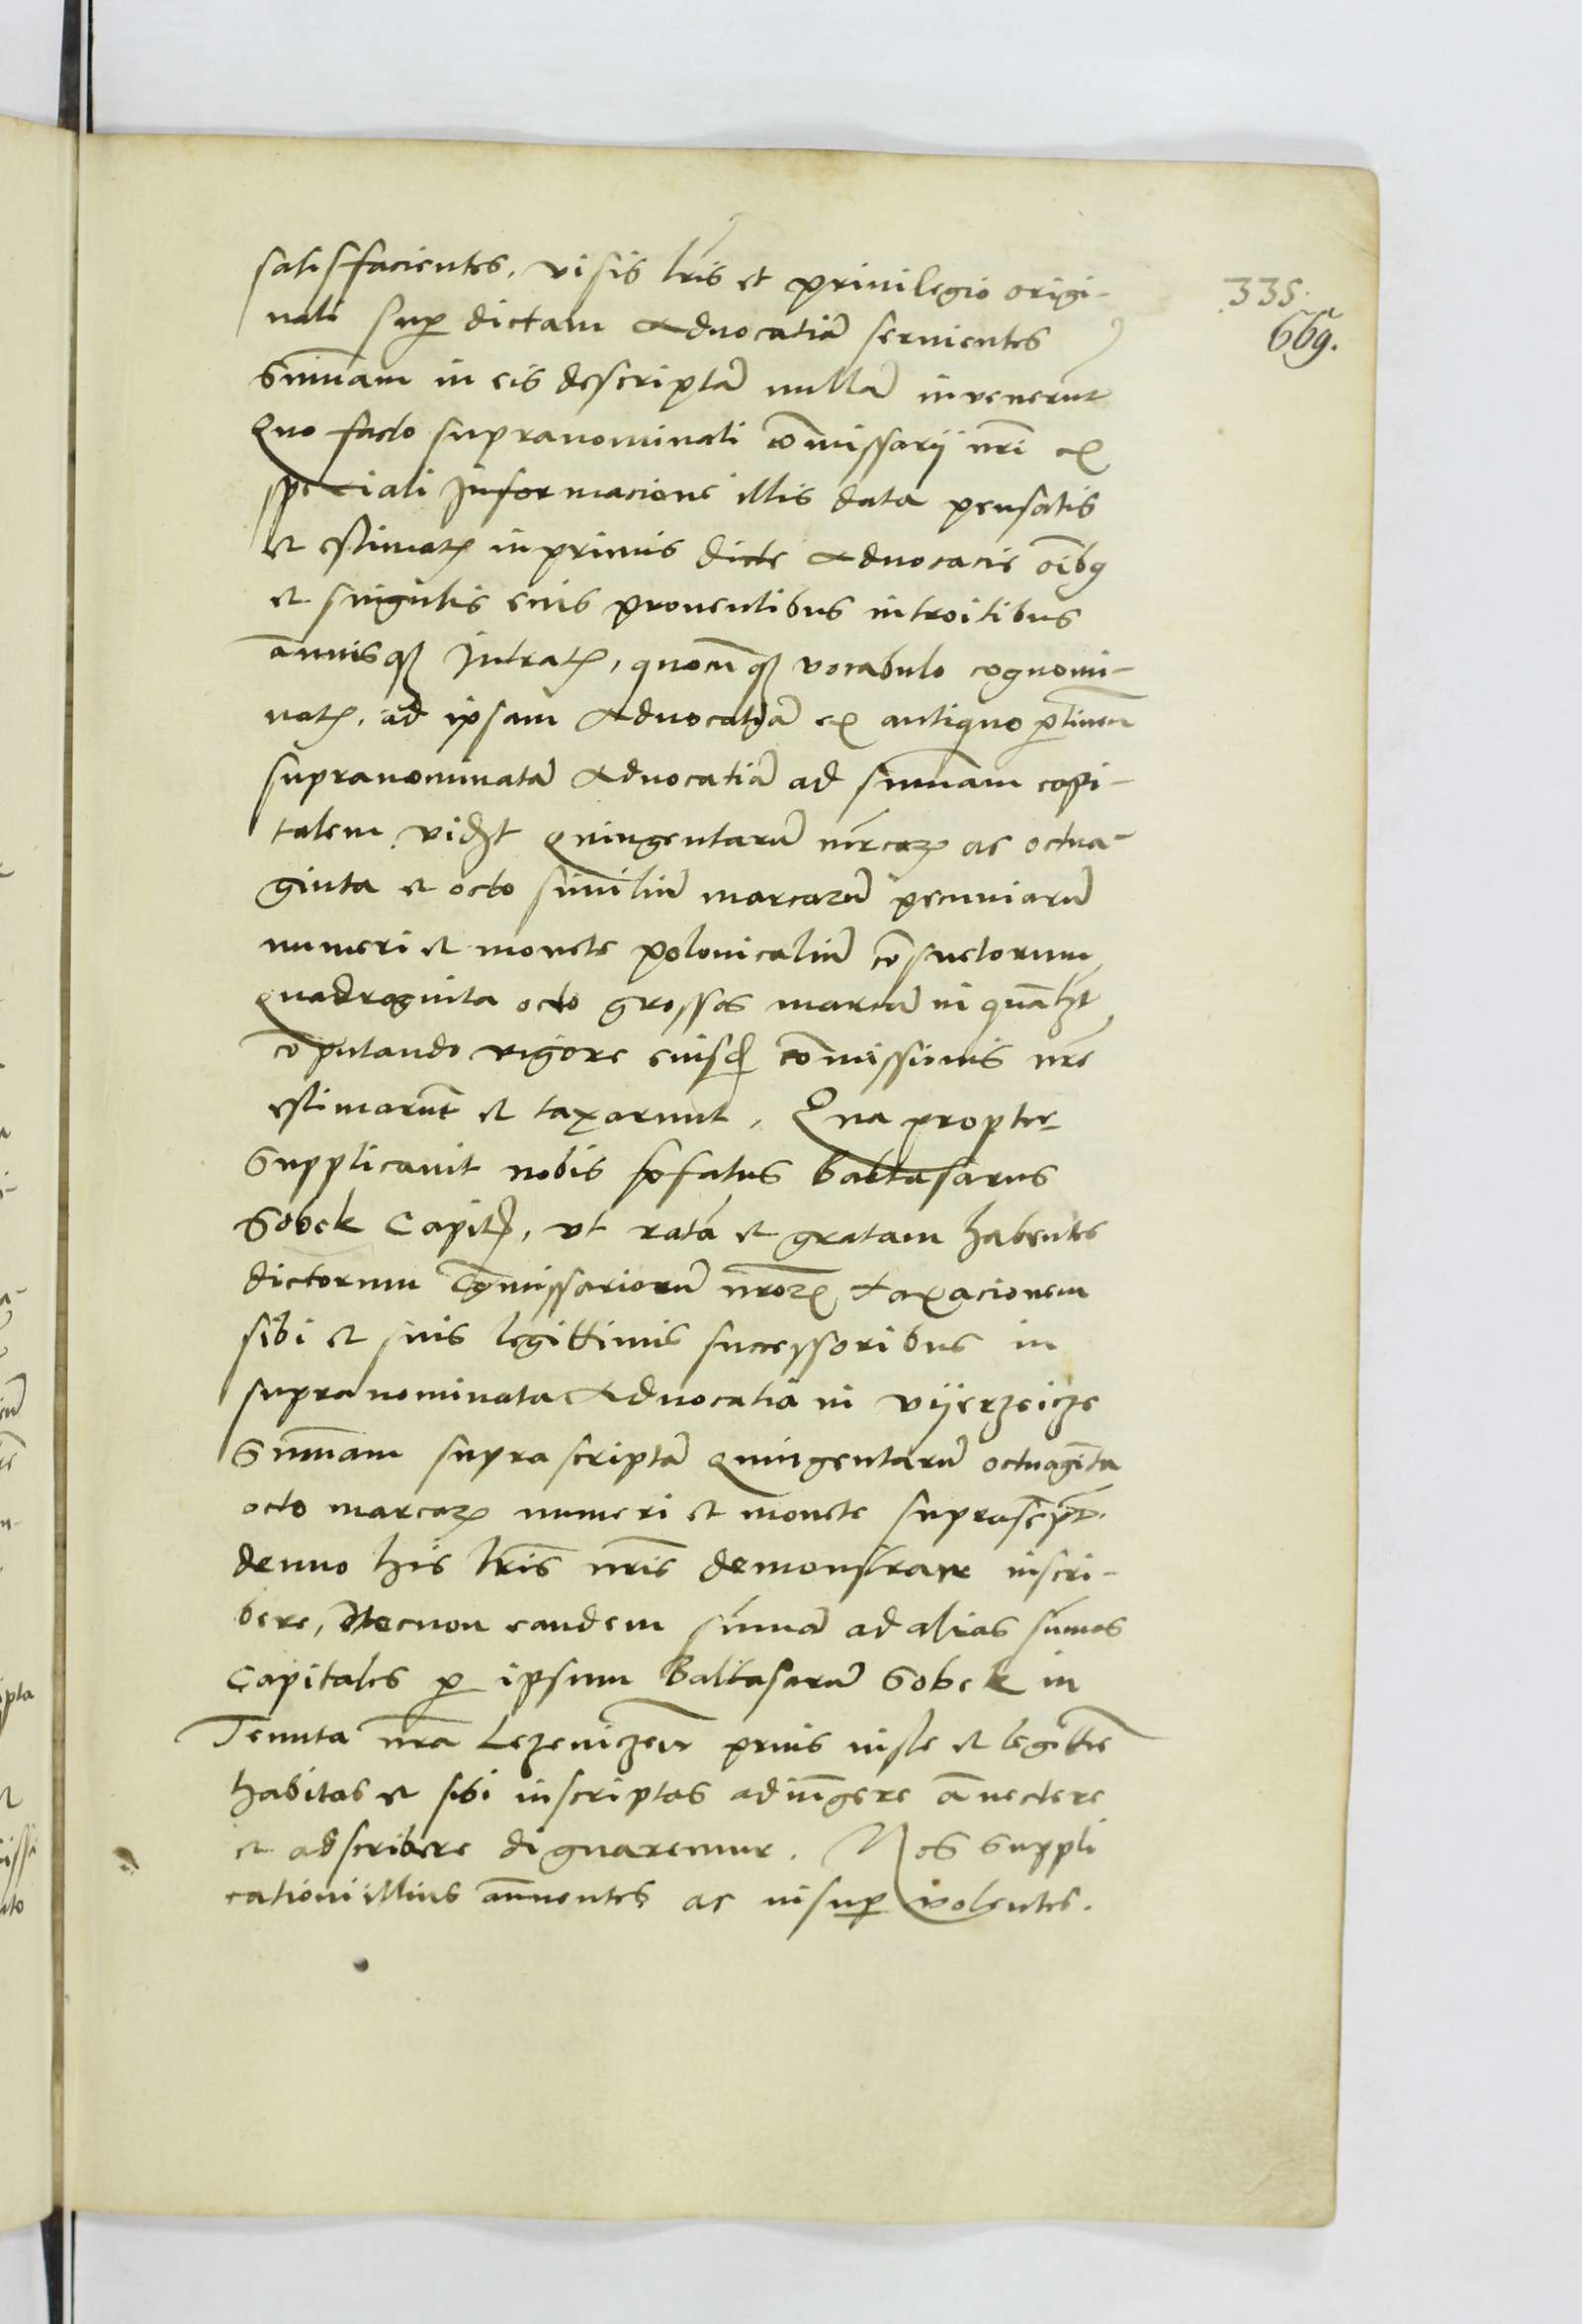 335.
669.
satisffacientes, visis lris et privilegio origi-
nali sup dictam Advocatiã servientes
Summam in eis descriptã nullã invenerũt
Quo facto supranominati cõmissarij nri ex
speciali Informacione illis data pensatis
et estimatis inprimis dicte Advocacie oĩbq
et singulis eius proventibus introitibus
ãnuisq Intratis, quocũq vocabulo cognomi-
natis, ad ipsam Advocatiã ex antiquo ptinen
supranominatã Advocatiã ad summam capi-
talem, videlt Quingentarũ mrcarum ac octua-
ginta et octo similiũ marcarũ pecuniarũ
numeri et monete polonicaliũ cõsuetorum
Quadraginta octo grossos marcã in quãlzt
cõputando vigore eiusd cõmissionis nre
estimarũt et taxarunt. Qua propter
Supplicavit nobis pfatus Baltasarus
Sobek Capit, ut ratã et gratam habentes
dictorum Cõmissariorũ nrorum taxacionem
sibi et suis legittimis successoribus in
supranominata Advocatia in vijerzeicze
Summam suprascriptã Quingentarũ octuagĩta
octo marcarum numeri et monete suprascpt.
denuo his lris nris demonstrare inscri-
bere, Necnon eandem sũmã ad alias sũmas
Capitales p ipsum Baltasarũ Sobek in
Tenuta nra Lezeniczen prius iuste et legittie
habitas et sibi inscriptas adiũgere ãnectere
et adscribere dignaremur. Nos suppli
cationi illius ãnuentes ac insup volentes.